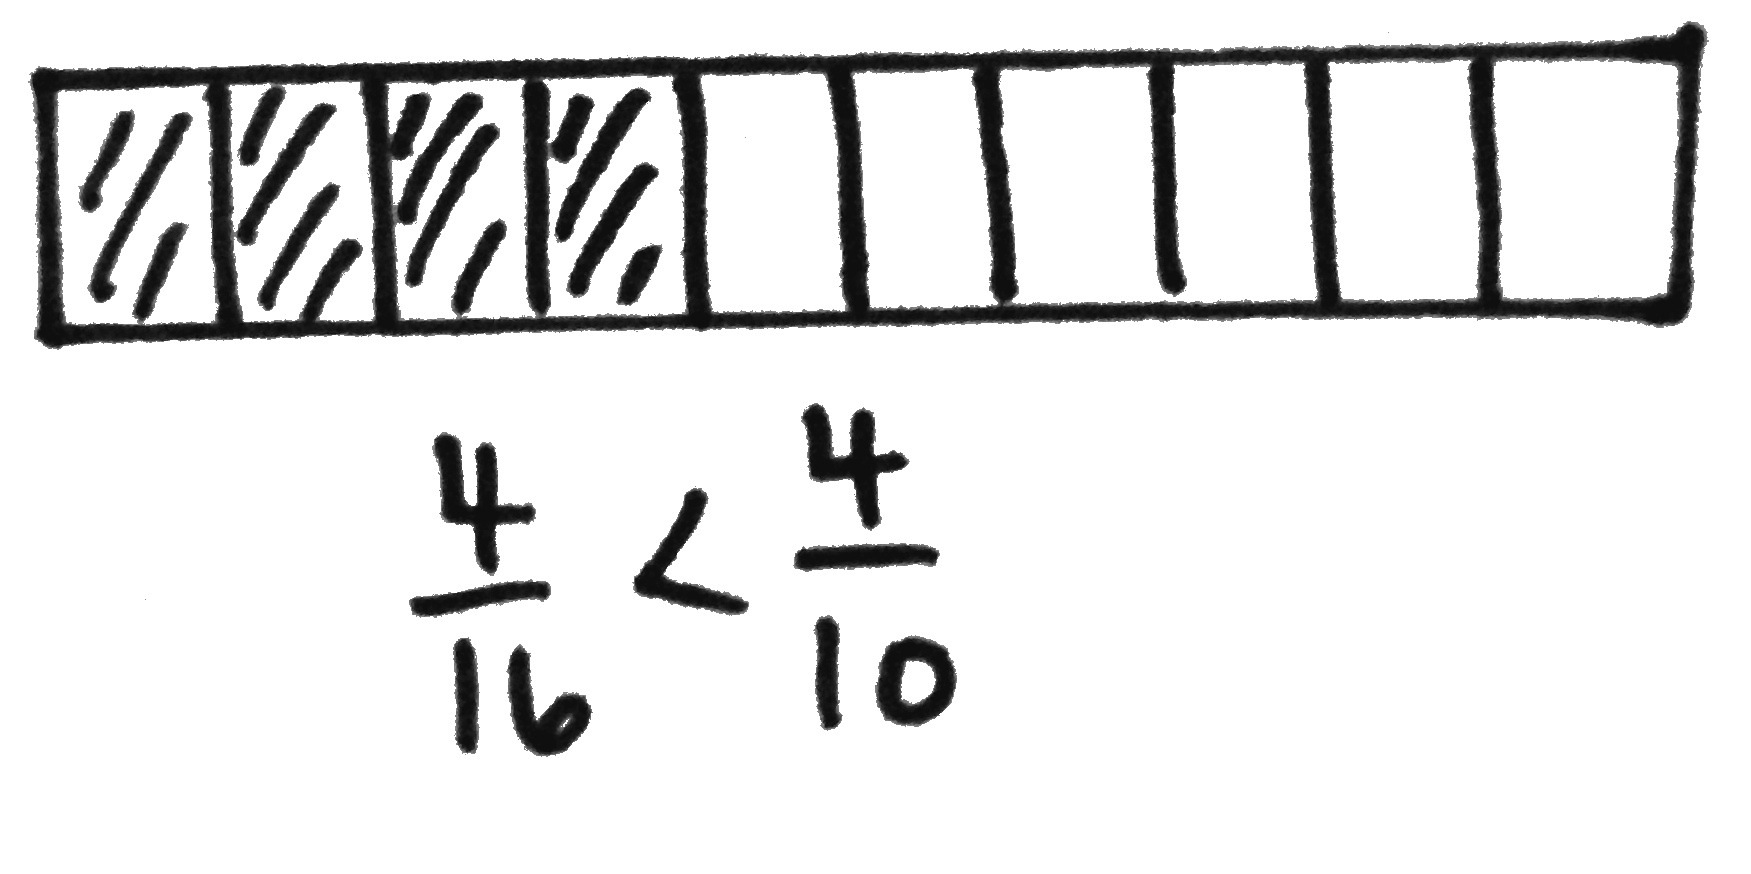 4/16 < 4/10